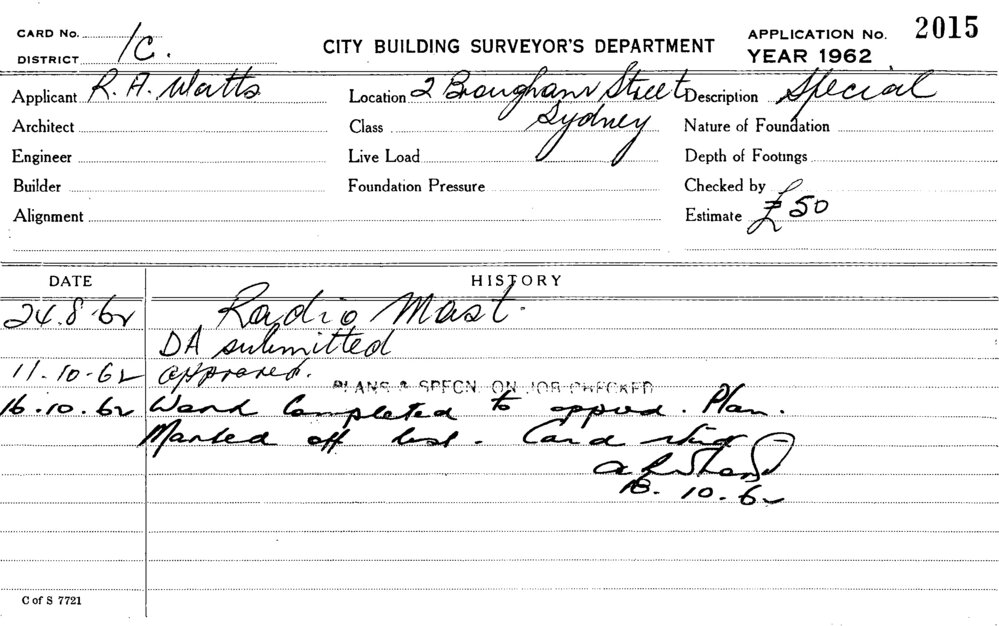 CARD No.
DISTRICT 1C.
CITY BUILDING SURVEYOR'S DEPARTMENT
APPLICATION No. 2015
YEAR 1962
Applicant R. A. Watts
Location 2 Brougham Street Sydney
Description Special
Architect
Class
Nature of Foundation
Engineer
Live Load
Depth of Footings
Builder
Foundation Pressure
Checked by
Alignment
Estimate £50
DATE HISTORY
24.8.62 Radio Mast.
DA submitted
11.10.62 approved.
PLANS & SPECN. ON JOB CHECKED
16.10.62 Work Completed to appvd. Plan.
Marked off list. Card
18.10.62
C of S 7721